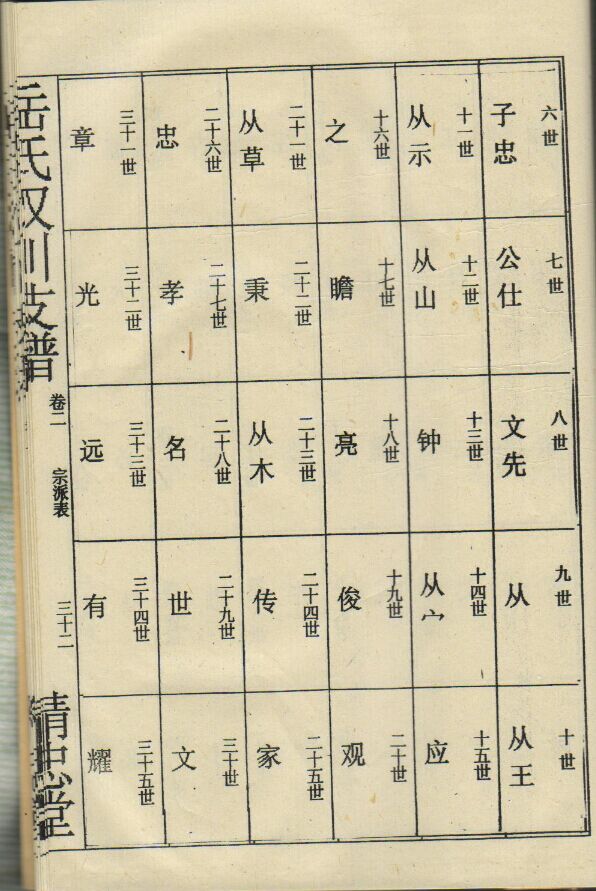 六世
子忠
七世
公仕
八世
文先
九世
从
十世
从王
十一世
从示
十二世
从山
十三世
钟
十四世
从宀
十五世
应
十六世
之
十七世
瞻
十八世
亮
十九世
俊
二十世
观
二十一世
从草
二十二世
秉
二十三世
从木
二十四世
传
二十五世
家
二十六世
忠
二十七世
孝
二十八世
名
二十九世
世
三十世
文
三十一世
章
三十二世
光
三十三世
远
三十四世
有
三十五世
耀
岳氏 支谱
卷二
宗派表
三十二
精忠堂